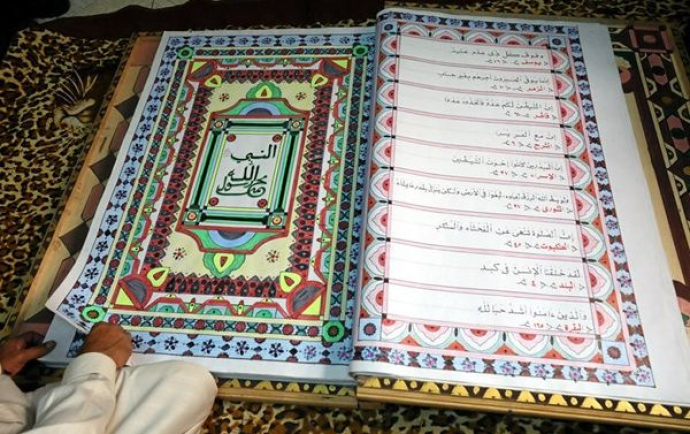 وفوق كل ذي علم عليم
< يوسف >
إنما يوفى الصبرون أجرهم بغير حساب
< الزمر > < ١٠ >
إن الشيطن لكم عدو فاتخذوه عدوا
< فاطر >
إن مع العسر يسرا
< الشرح > < ٦ >
إن المبذرين كانوا إخوان الشيطين
< الإسراء > < ٢٧ >
ولو بسط الله الرزق لعباده لبغوا في الأرض ولكن ينزل بقدر ما يشاء
< الشورى >
إن الصلوة تنهى عن الفحشاء والمنكر
< العنكبوت > < ٤٥ >
لقد خلقنا الإنسن في كبد
< البلد > < ٤ >
والذين ءامنوا أشد حبا لله
< البقرة > < ١٦٥ >
النبي
محمد رسول الله